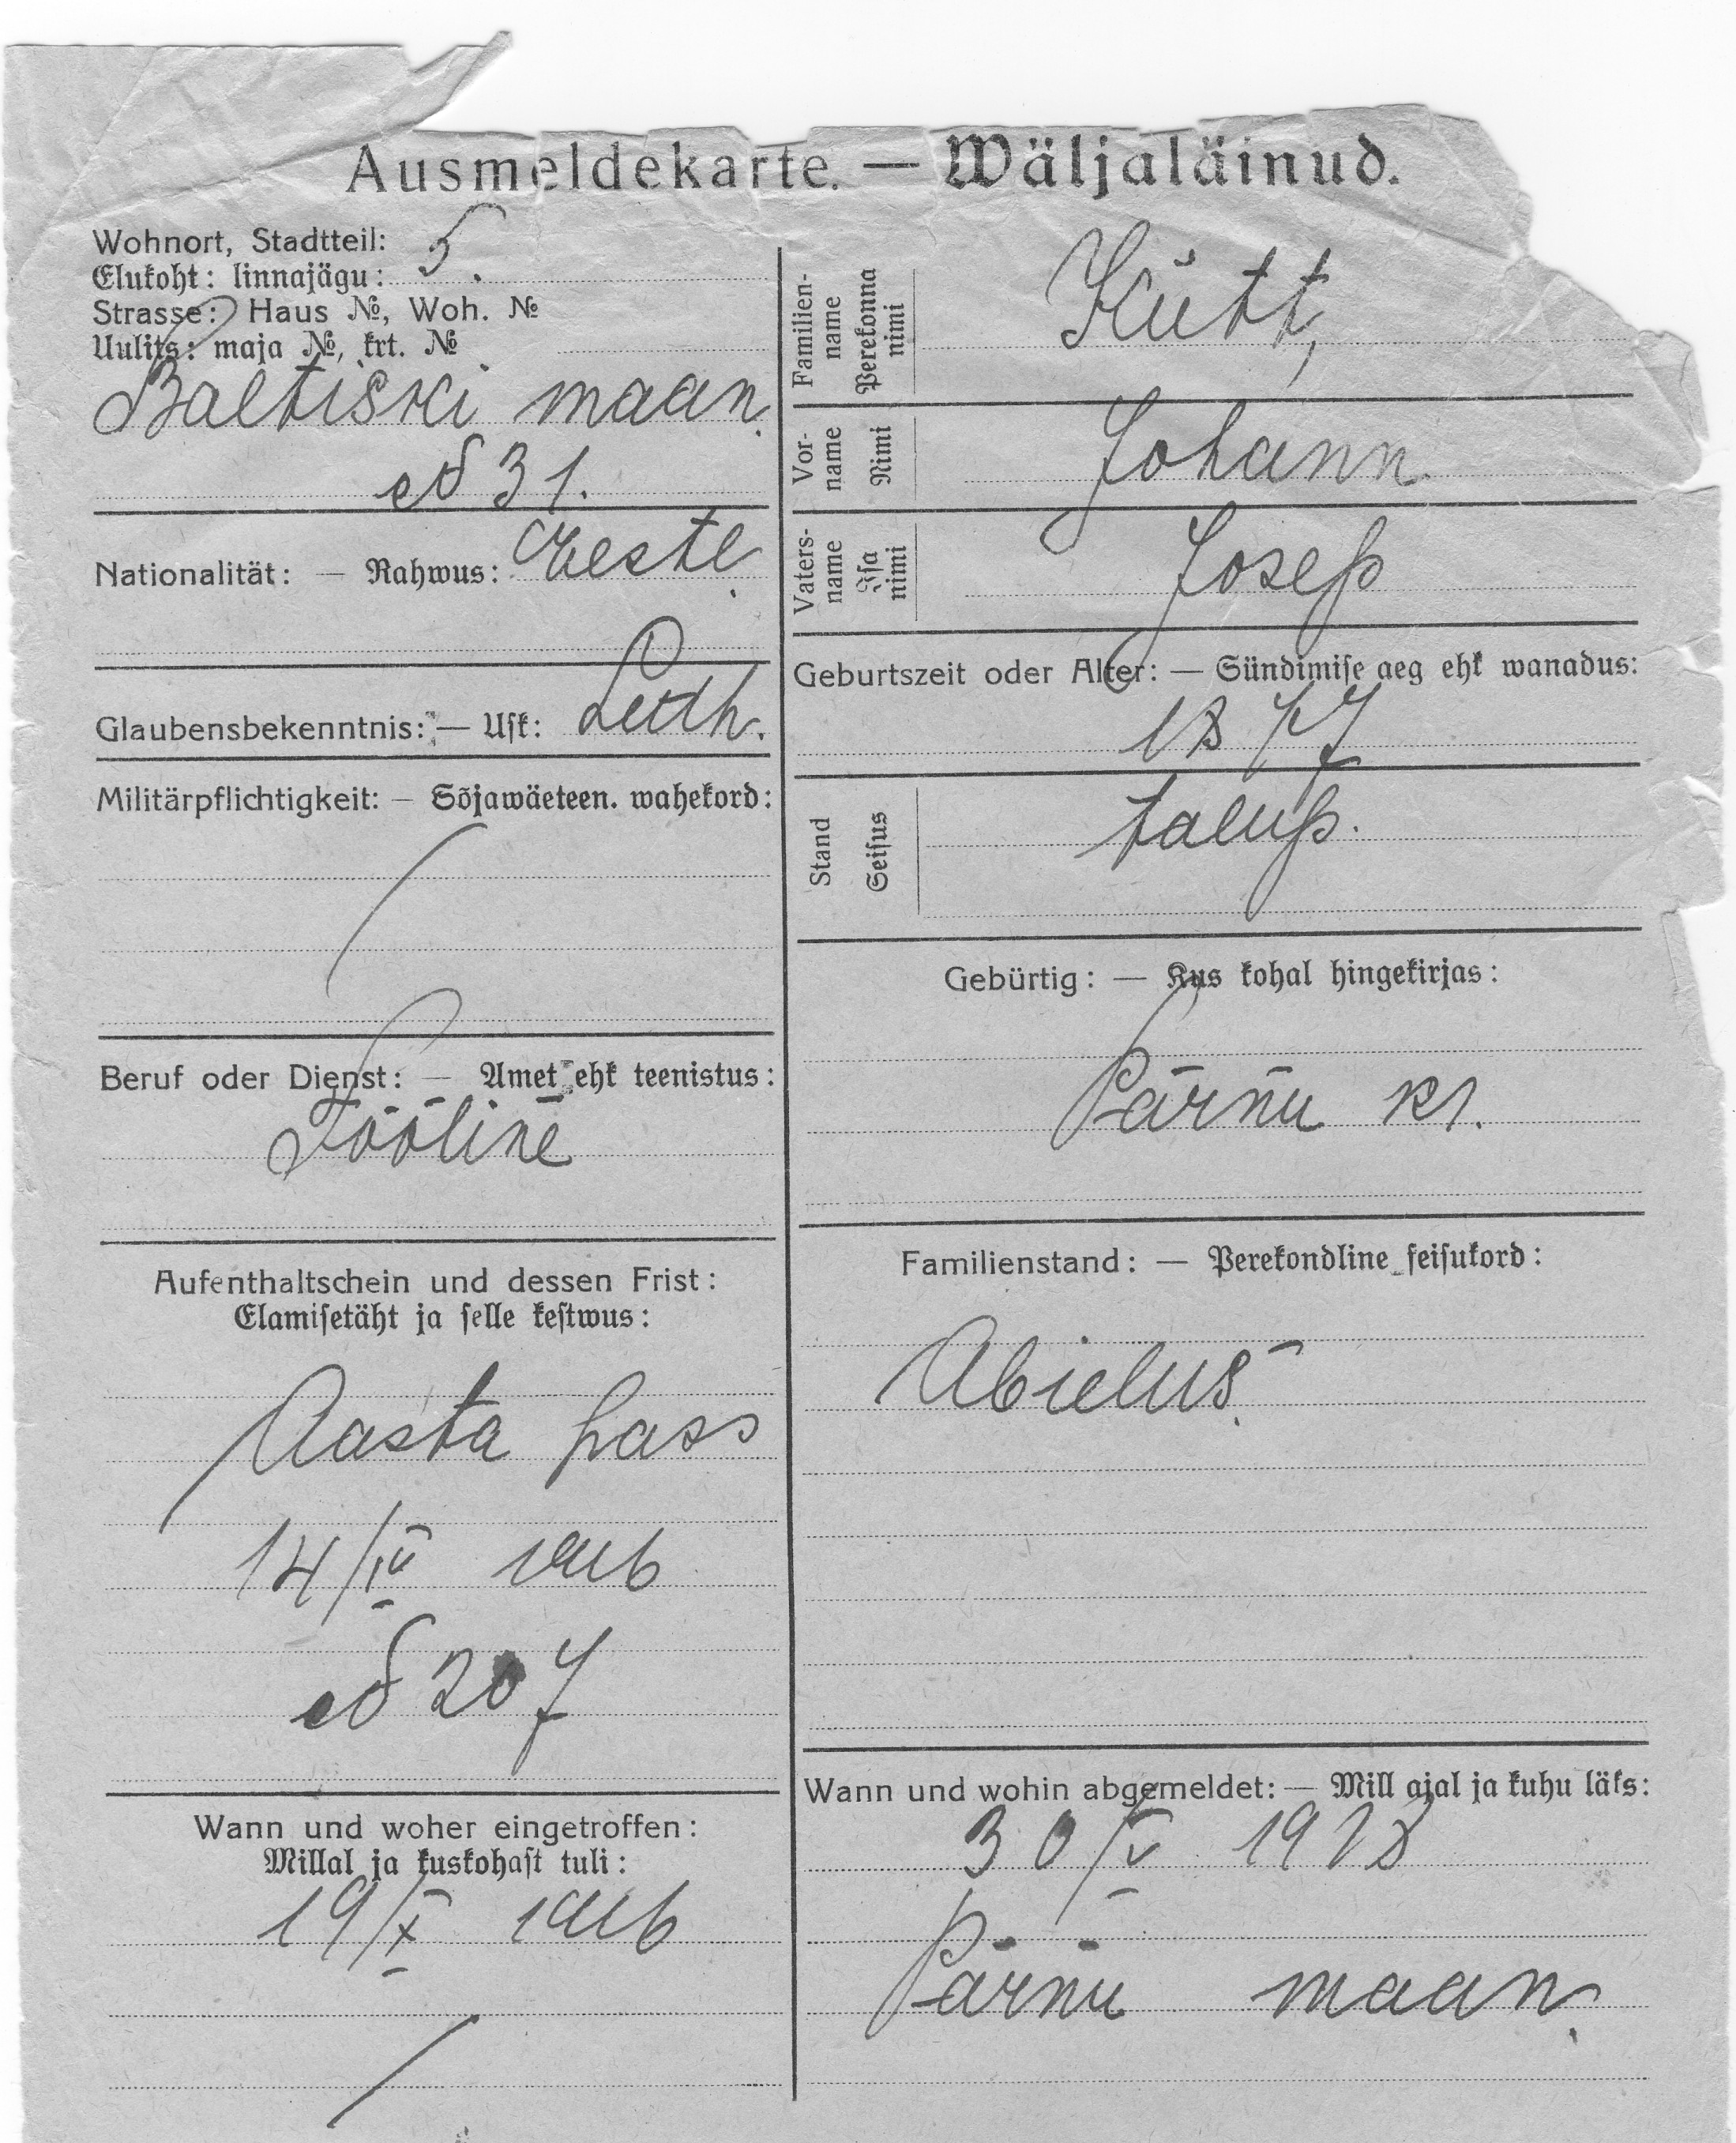 Ausmeldekarte. — Wäljaläinud.
Wohnort, Stadtteil: 5.
Elukoht: linnajägu:
Strasse: Haus №, Woh. №
Uulits: maja №, krt. №
Baltiski maan.
№ 31.
Nationalität: — Rahwus: Eestl.
Glaubensbekenntnis: — Usk: Luth.
Militärpflichtigkeit: — Sõjawäeteen. wahekord:
Beruf oder Dienst: — Amet ehk teenistus:
Tööline
Aufenthaltschein und dessen Frist:
Elamisetäht ja selle kestwus:
Aasta pass
14/IV 1916
№ 207
Wann und woher eingetroffen:
Millal ja kuskohast tuli:
19/X 1916
Familien-
name
Perekonna
nimi
Kütt,
Vor-
name
Nimi
Johann
Vaters-
name
Isa
nimi
Josep
Geburtszeit oder Alter: — Sündimise aeg ehk wanadus:
1877
Stand
Seisus
talup.
Gebürtig: — Kus kohal hingekirjas:
Pärnu kr.
Familienstand: — Perekondline seisukord:
Abielus.
Wann und wohin abgemeldet: — Mill ajal ja kuhu läks:
30/V 1918
Pärnu maan.